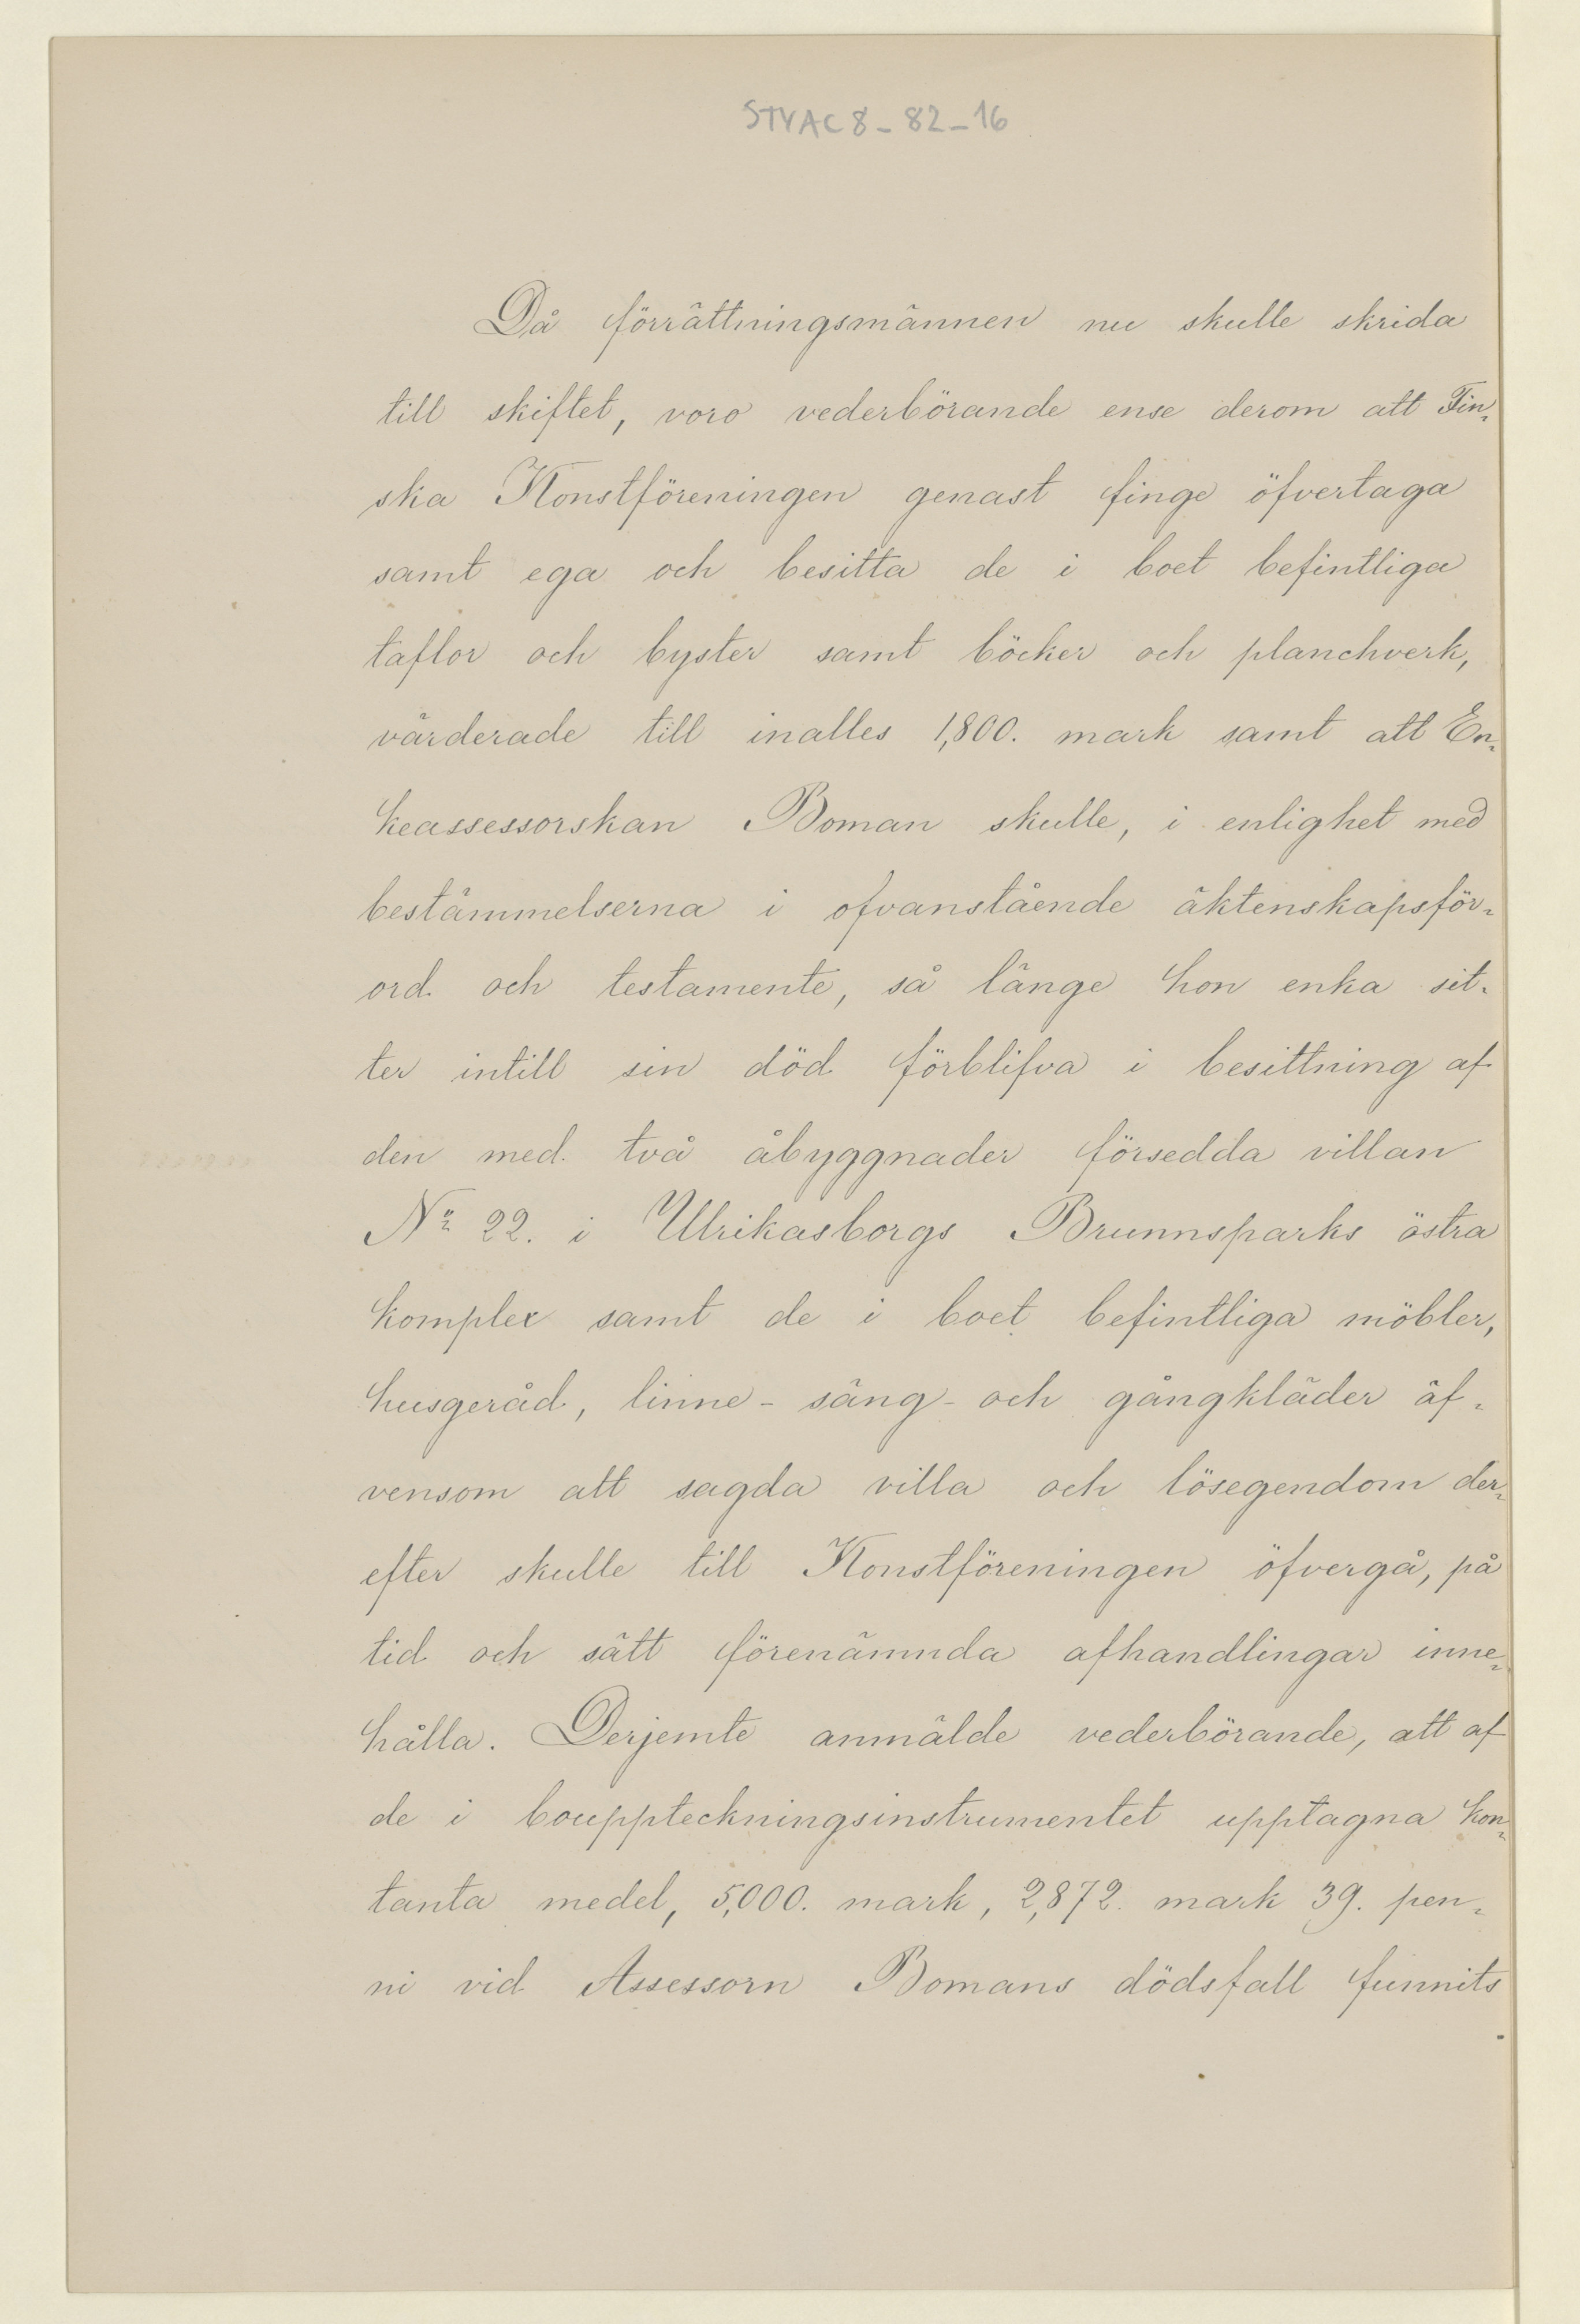 STYAC8-82-16
Då förrättningsmännen nu skulle skrida
till skiftet, voro vederbörande ense derom att Fin-
ska Konstföreningen genast finge öfvertaga
samt ega och besitta de i boet befintliga
taflor och byster samt böcker och planchverk,
värderade till inalles 1,800. mark samt att En-
keassessorskan Boman skulle, i enlighet med
bestämmelserna i ofvanstående äktenskapsför-
ord och testamente, så länge hon enka sit-
ter intill sin död förblifva i besittning af
den med två åbyggnader försedda villan
No 22. i Ulrikasborgs Brunnsparks östra
komplex samt de i boet befintliga möbler,
husgeråd, linne- säng- och gångkläder äf-
vensom att sagda villa och lösegendom der-
efter skulle till Konstföreningen öfvergå, på
tid och sätt förenämnda afhandlingar inne-
hålla. Derjemte anmälde vederbörande, att af
de i bouppteckningsinstrumentet upptagna kon-
tanta medel, 5,000. mark, 2,872. mark 39. pen-
ni vid Assessorn Bomans dödsfall funnits